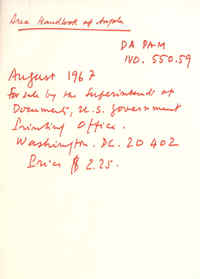 Area Handbook of Angola
DA PAM
NO. 550.59
August 1967
for sale by the Superintendent of
Documents, U.S. Government
Printing Office.
Washington. DC. 20402
Price $ 2.25.